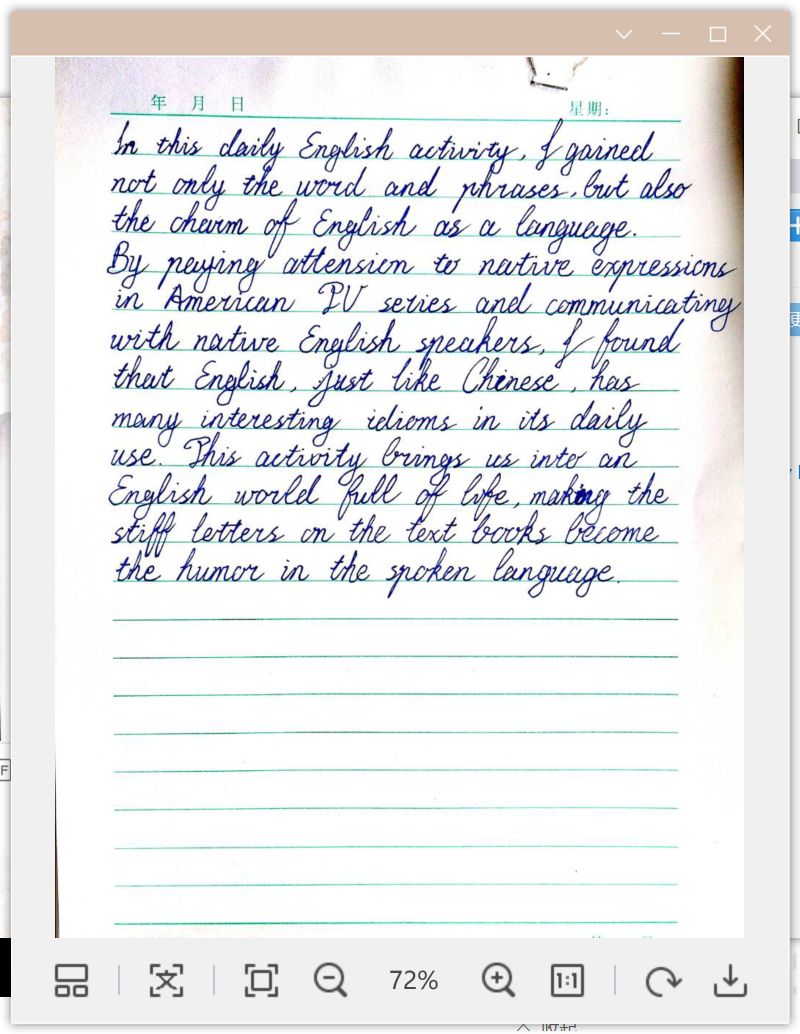 年 月 日 星期:
In this daily English activity, I gained
not only the word and phrases, but also
the charm of English as a language.
By paying attension to native expressions
in American TV series and communicating
with native English speakers, I found
that English, just like Chinese, has
many interesting idioms in its daily
use. This activity brings us into an
English world full of life, making the
stiff letters on the text books become
the humor in the spoken language.
72%
1:1